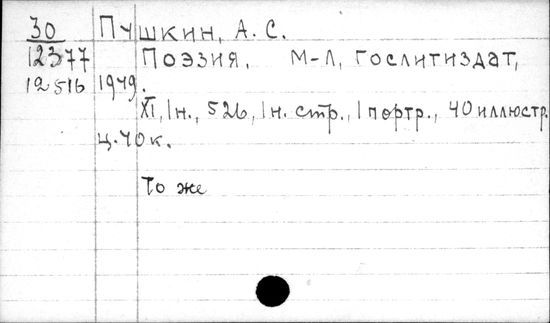 30 Пушкин, А. С.
12377 Поэзия. М-Л, Гослитиздат,
12516 1949.
XI, 1н., 526, 1н. стр., 1 портр., 40 иллюстр.
ц. 40 к.
То же